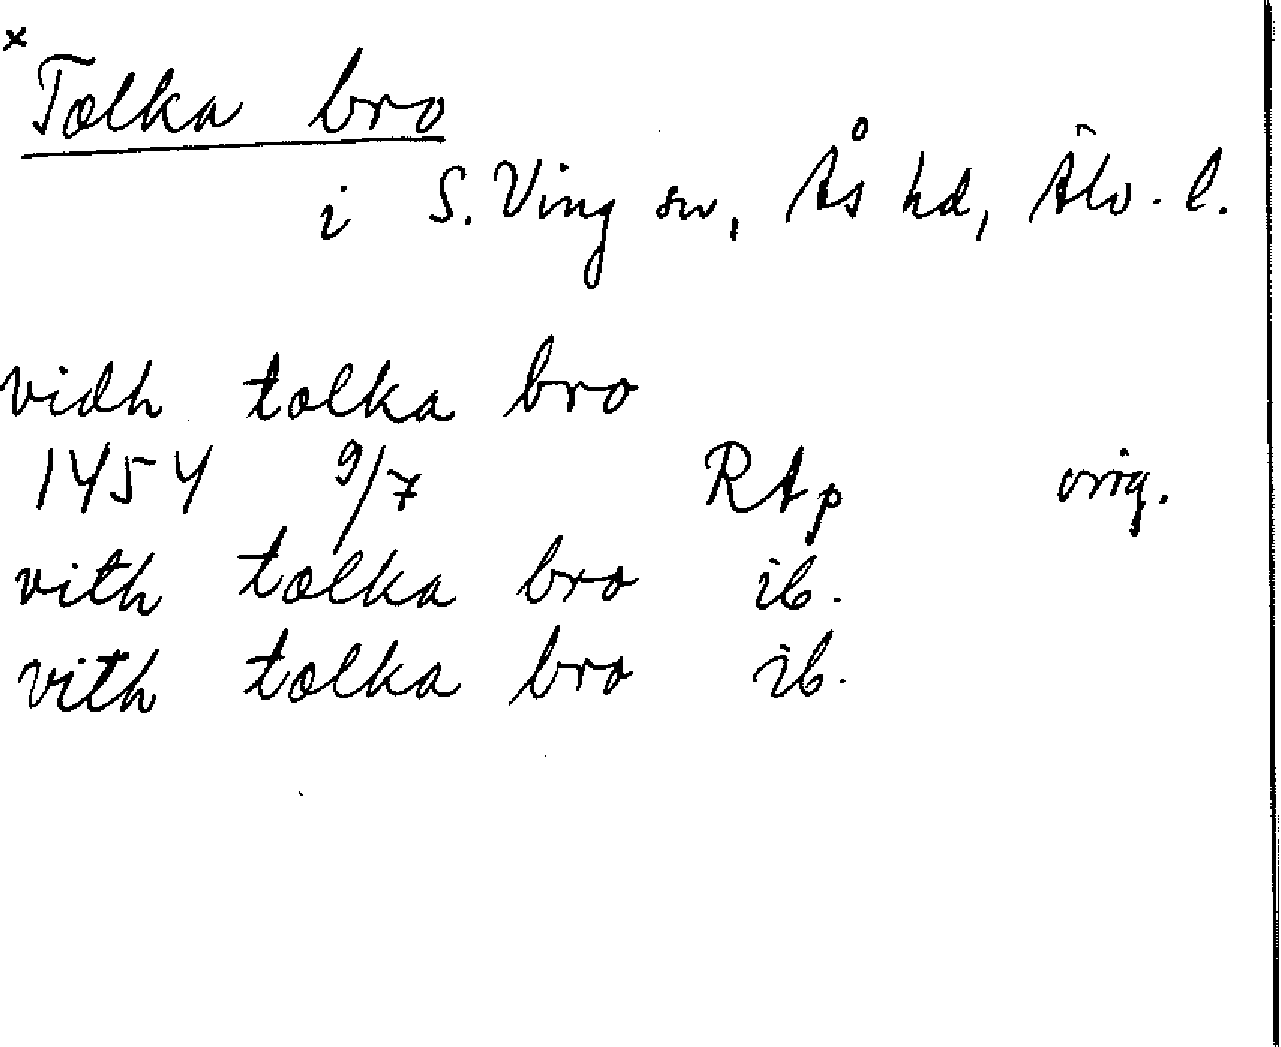 x
Tolka bro
i S. Ving sn, Ås hd, Älv. l.
vidh tolka bro
1454 9/7 RAp orig.
vith tolka bro ib.
vith tolka bro ib.